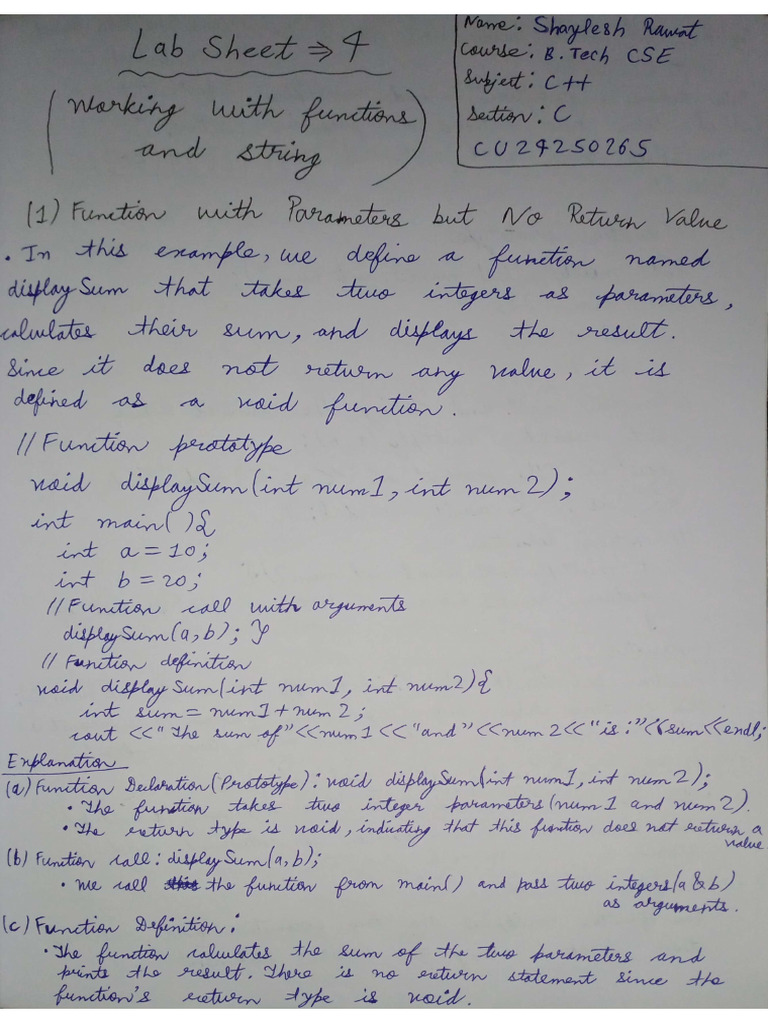 Lab Sheet ⇒ 4
(Working with functions
and string)
Name: Shaylesh Rawat
Course: B.Tech CSE
Subject: C++
Section: C
CU24250265
(1) Function with Parameters but No Return Value
• In this example, we define a function named
displaySum that takes two integers as parameters,
calculates their sum, and displays the result.
Since it does not return any value, it is
defined as a void function.
// Function prototype
void displaySum(int num1, int num2);
int main(){
int a = 10;
int b = 20;
// Function call with arguments
displaySum(a,b); }
// Function definition
void displaySum(int num1, int num2){
int sum = num1 + num2;
cout <<"The sum of"<<num1<<"and"<<num2<<"is:"<<sum<<endl;
Explanation
(a) Function Declaration (Prototype): void displaySum(int num1, int num2);
• The function takes two integer parameters (num1 and num2).
• The return type is void, indicating that this function does not return a
value
(b) Function call: displaySum(a,b);
• We call the function from main() and pass two integers (a & b)
as arguments.
(c) Function Definition:
• The function calculates the sum of the two parameters and
prints the result. There is no return statement since the
function's return type is void.